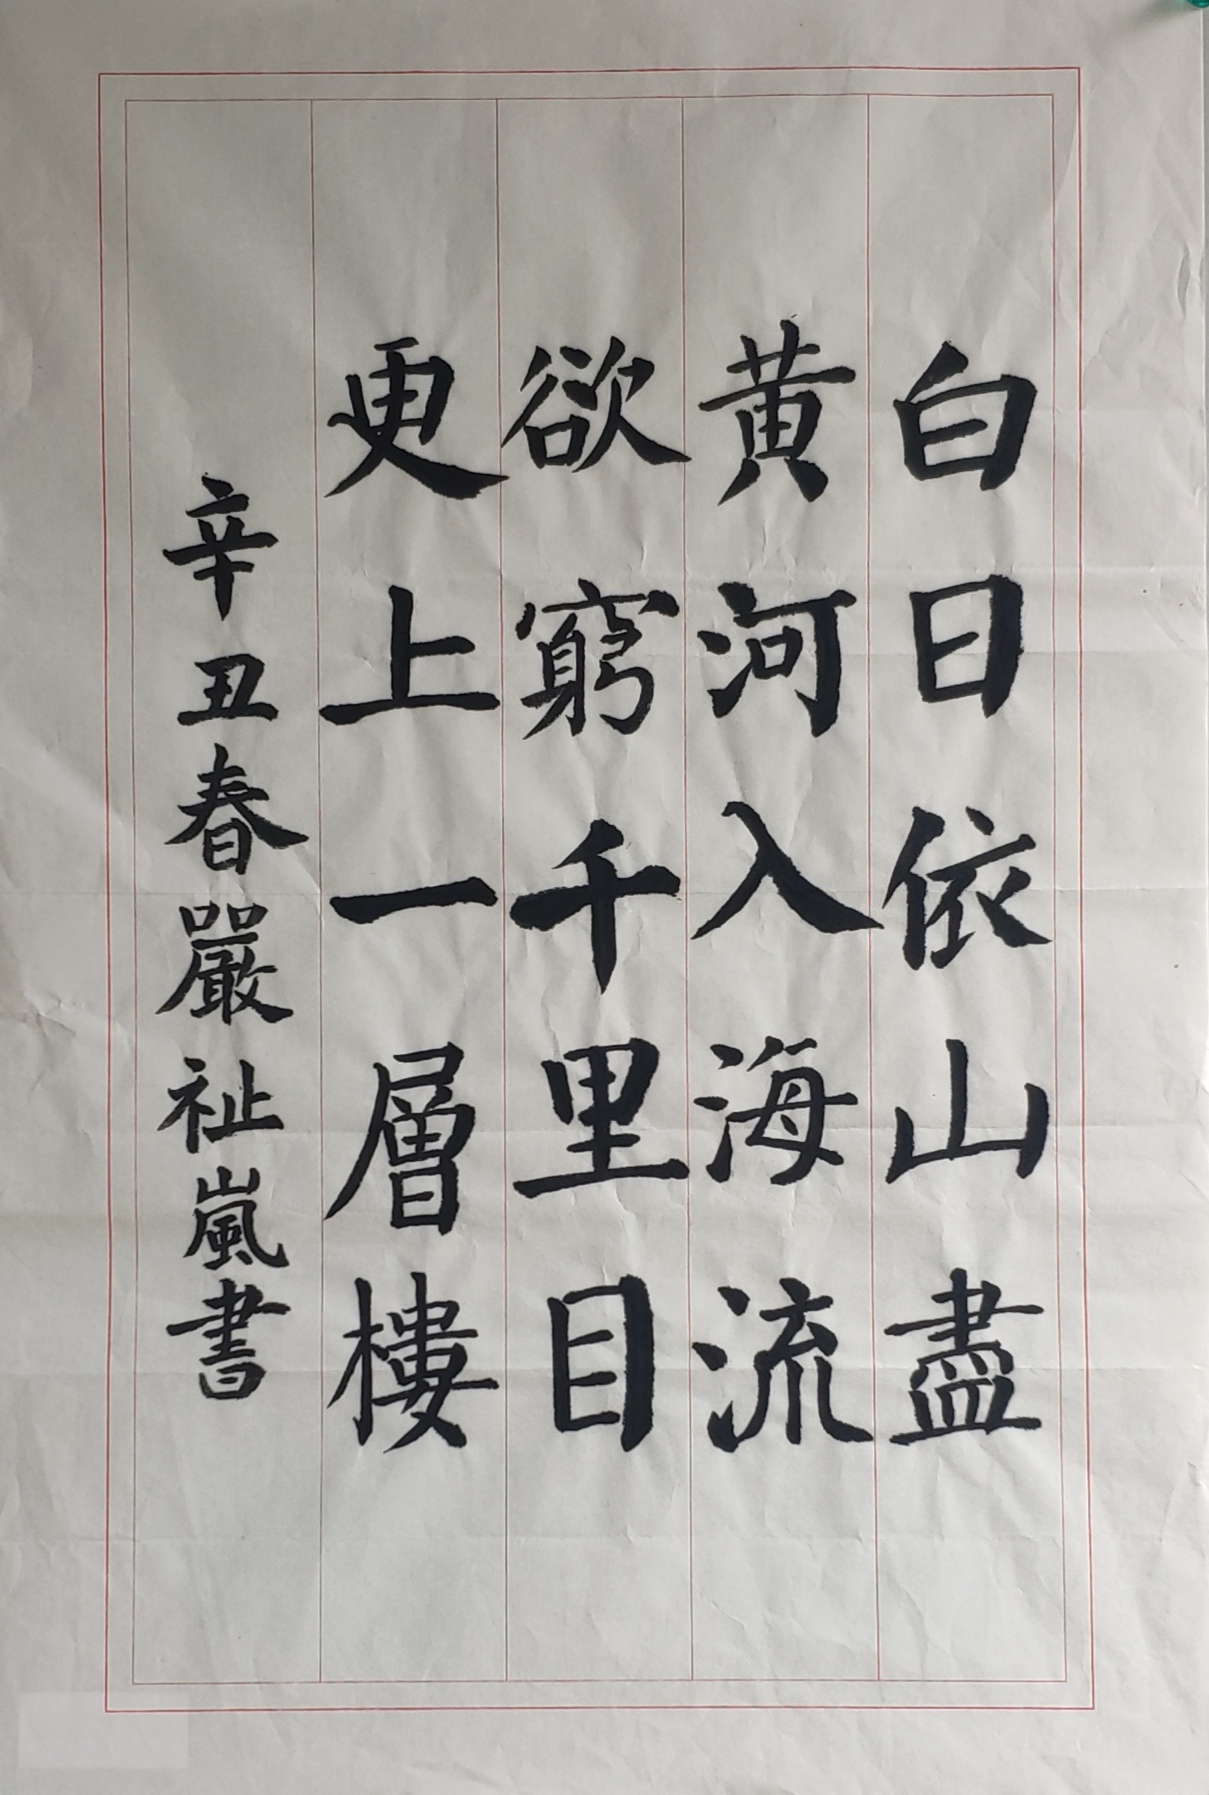 白日依山盡
黄河入海流
欲窮千里目
更上一層樓
辛丑春嚴祉嵐書